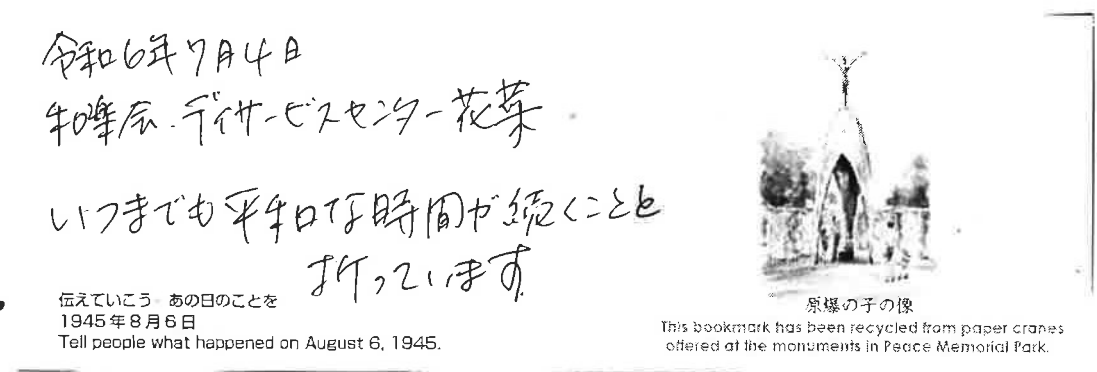 令和6年7月4日
和楽会.デイサービスセンター花菜
いつまでも平和な時間が続くことを
祈っています
伝えていこう あの日のことを
1945年8月6日
Tell people what happened on August 6, 1945.
原爆の子の像
This bookmark has been recycled from paper cranes
offered at the monuments in Peace Memorial Park.